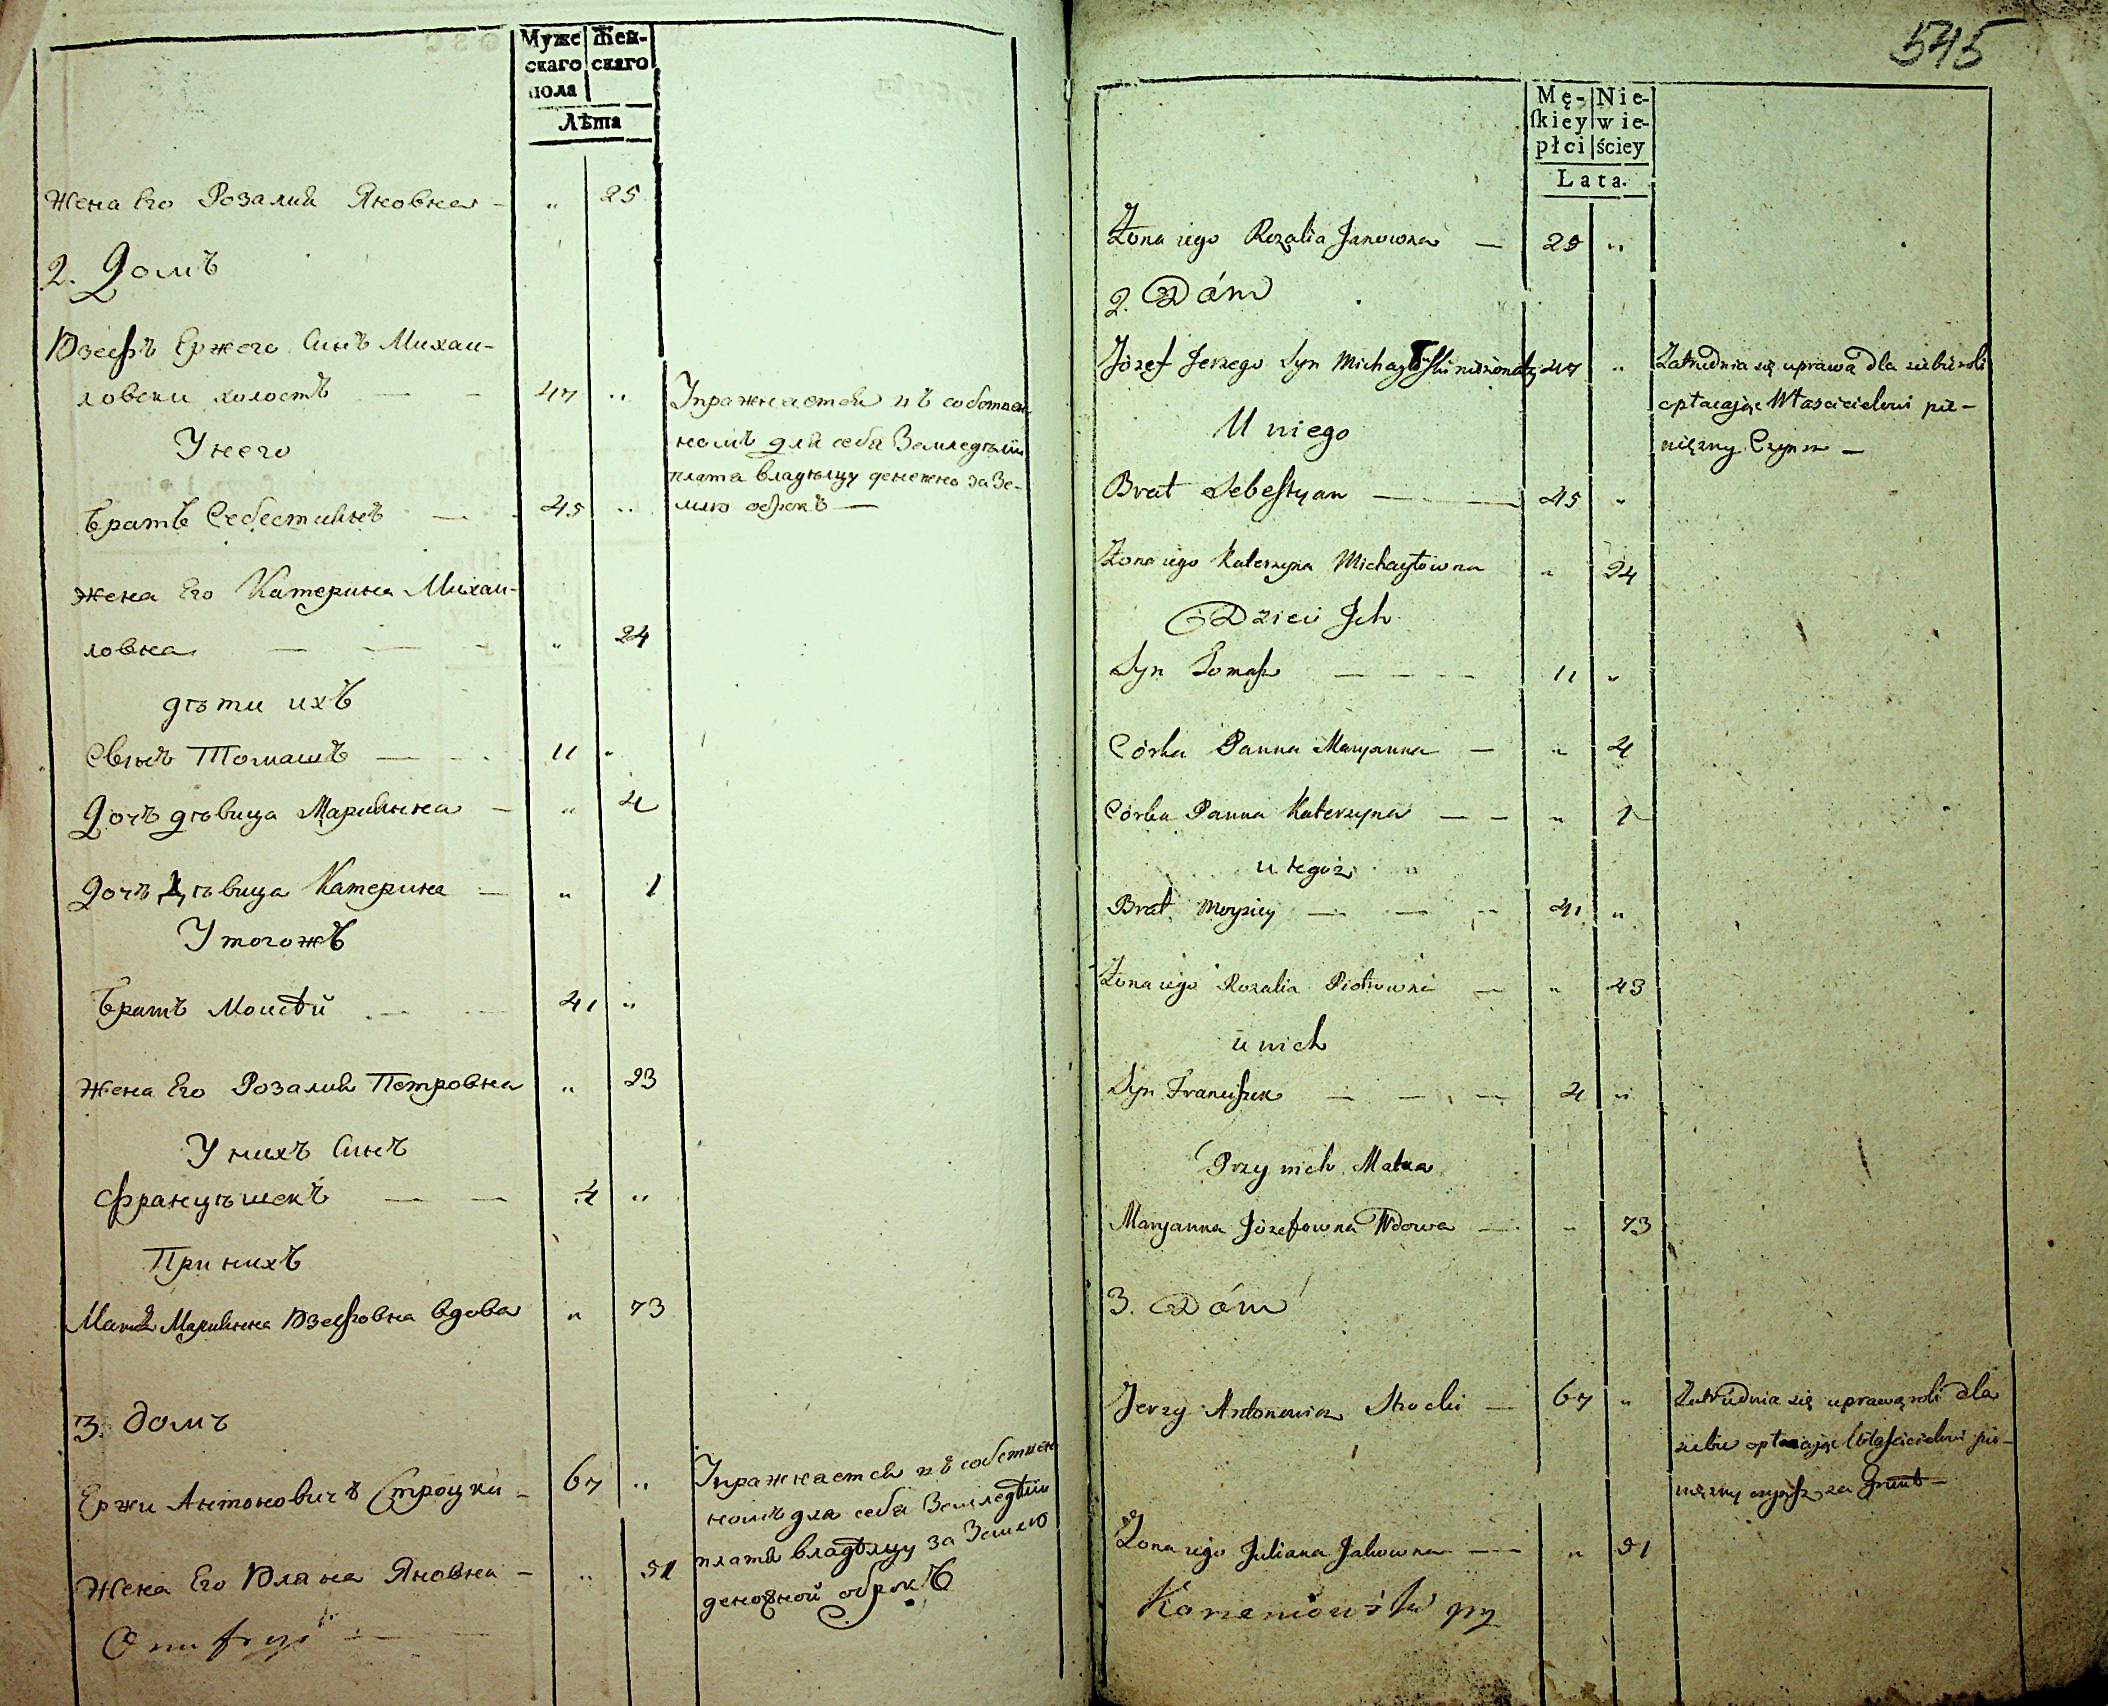 Муже Жен-
скаго скаго
пола
Лѣта
Жена Его Розалия Яновна - " 25
2. Домъ
Юзефъ Ержего Синъ Михаи-
ловски холостъ - - 47 "
У него
Братъ Себестиянъ - - 45 "
Жена Его Катерина Михаи-
ловна - - - - " 24
дѣти ихъ
Сынъ Томашъ - - - 11 "
Дочъ дѣвица Марияння - " 4
Дочъ Дѣвица Катерина - " 1
У тогожъ
Братъ Моисѣй - - 41 "
Жена Его Розалия Петровна " 23
У нихъ Синъ
Францѣшекъ - - 4 "
При нихъ
Матъ Марияння Юзефовна вдова " 73
3. домъ
Ержи Антоновичъ Строцки - 67 "
Жена Его Юляна Яновна - " 51
Onufryi - -
Упражнается въ собствен
номъ для себя Земледѣлии
плата владѣлцу денежно за Зе-
млю оброкъ -
Упражнается въ собствен
номъ для себя Земледѣлии
платя владѣлцу за Землю
деножной оброкъ
545
Mę- Nie-
ſkiey wie-
płci ściey
Lata.
Żona iego Rozalia Janowna - 25 "
2. Dóm
Józef Jerzego Syn Michayłowski nieżonaty 47 "
U niego
Brat Sebestyan - - 45 "
Żona iego Katerzyna Michayłowna " 24
Dzieci Jch
Syn Tomasz - - - 11 "
Córka Panna Maryanna - " 4
Córka Panna Katerzyna - - " 1
u tegoż
Brat Moyżiey - - - 41 "
Żona iego Rozalia Piotrowna - " 43
u nich
Syn Franciszek - - - 4 "
Przy nich Matka
Maryanna Józefowna Wdowa - " 73
3. Dóm
Jerzy Antonowicz - 67 "
Żona iego Juliana Janowna - " 51
Zatrudnia się uprawą dla siebie roli
opłacając Właścicielowi pie-
niężny Czynsz -
Zatrudnia się uprawą roli dla
siebie opłacając Właścicielowi pie-
niężny czynsz za Grunt -